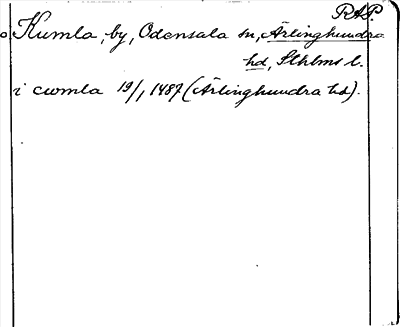 RAP.
Kumla, by, Odensala sn, Ärlinghundra
hd, Sthlms l.
i cwmla 19/1 1487 (Ärlinghundra hd).